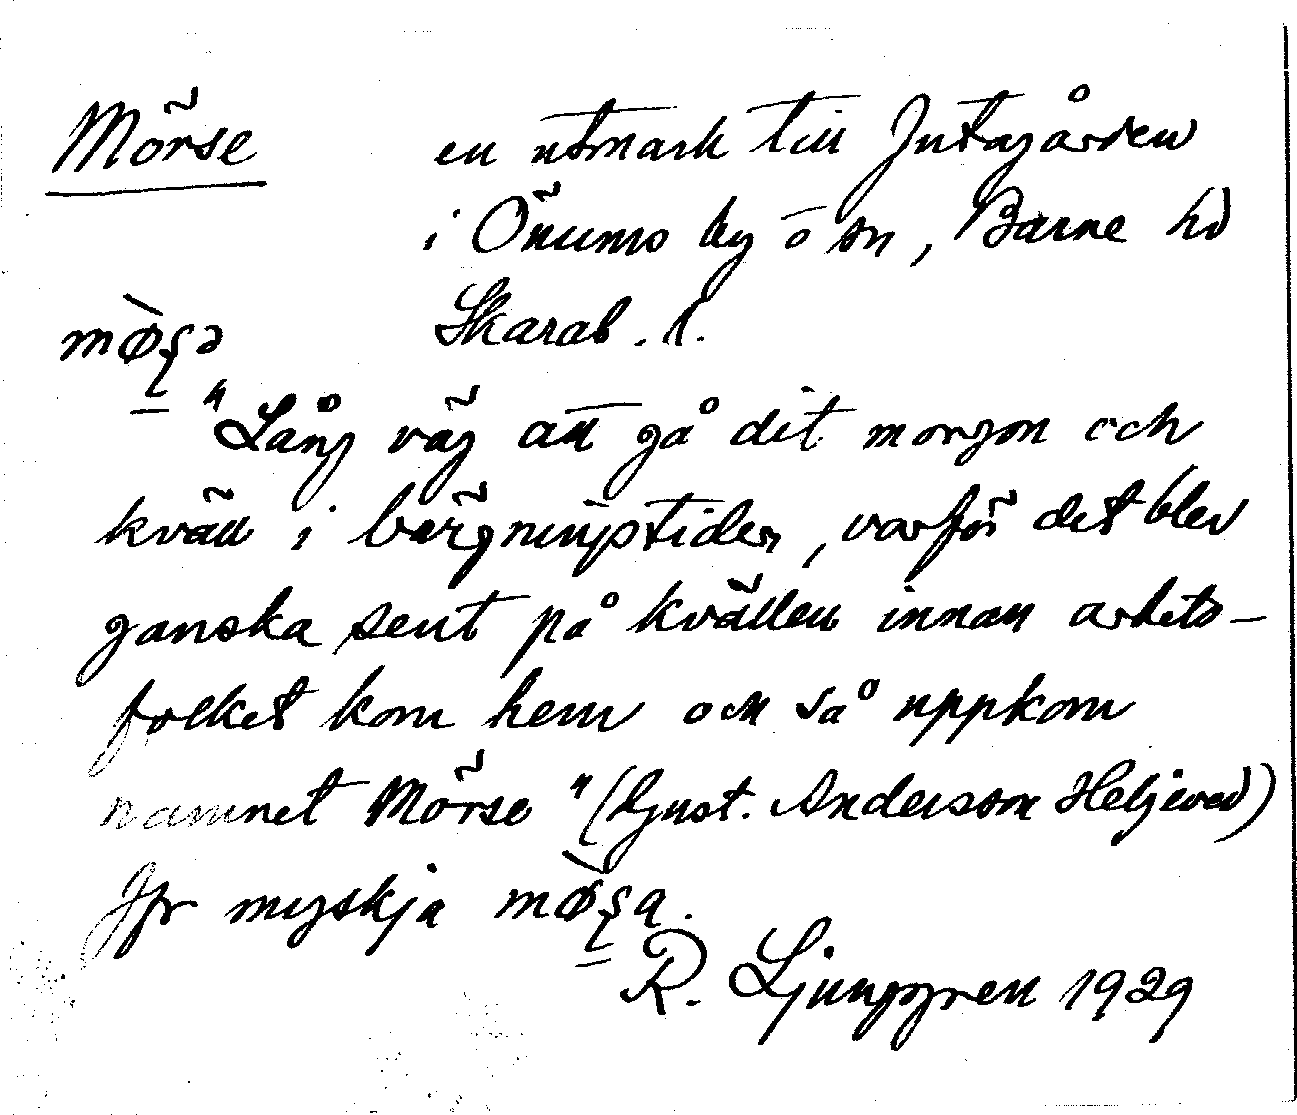 Mörse en utmark till Jutagården
i Önums by o sn, Barne hd
Skarab. l.
mø̀ʂə
"Lång väg att gå dit morgon och
kväll i bärgningstiden, varför det blev
ganska sent på kvällen innan arbets-
folket kom hem och så uppkom
namnet Mörse" (Gust. Andersson Heljeved)
Jfr myskja mø̀ʂa.
R. Ljunggren 1929